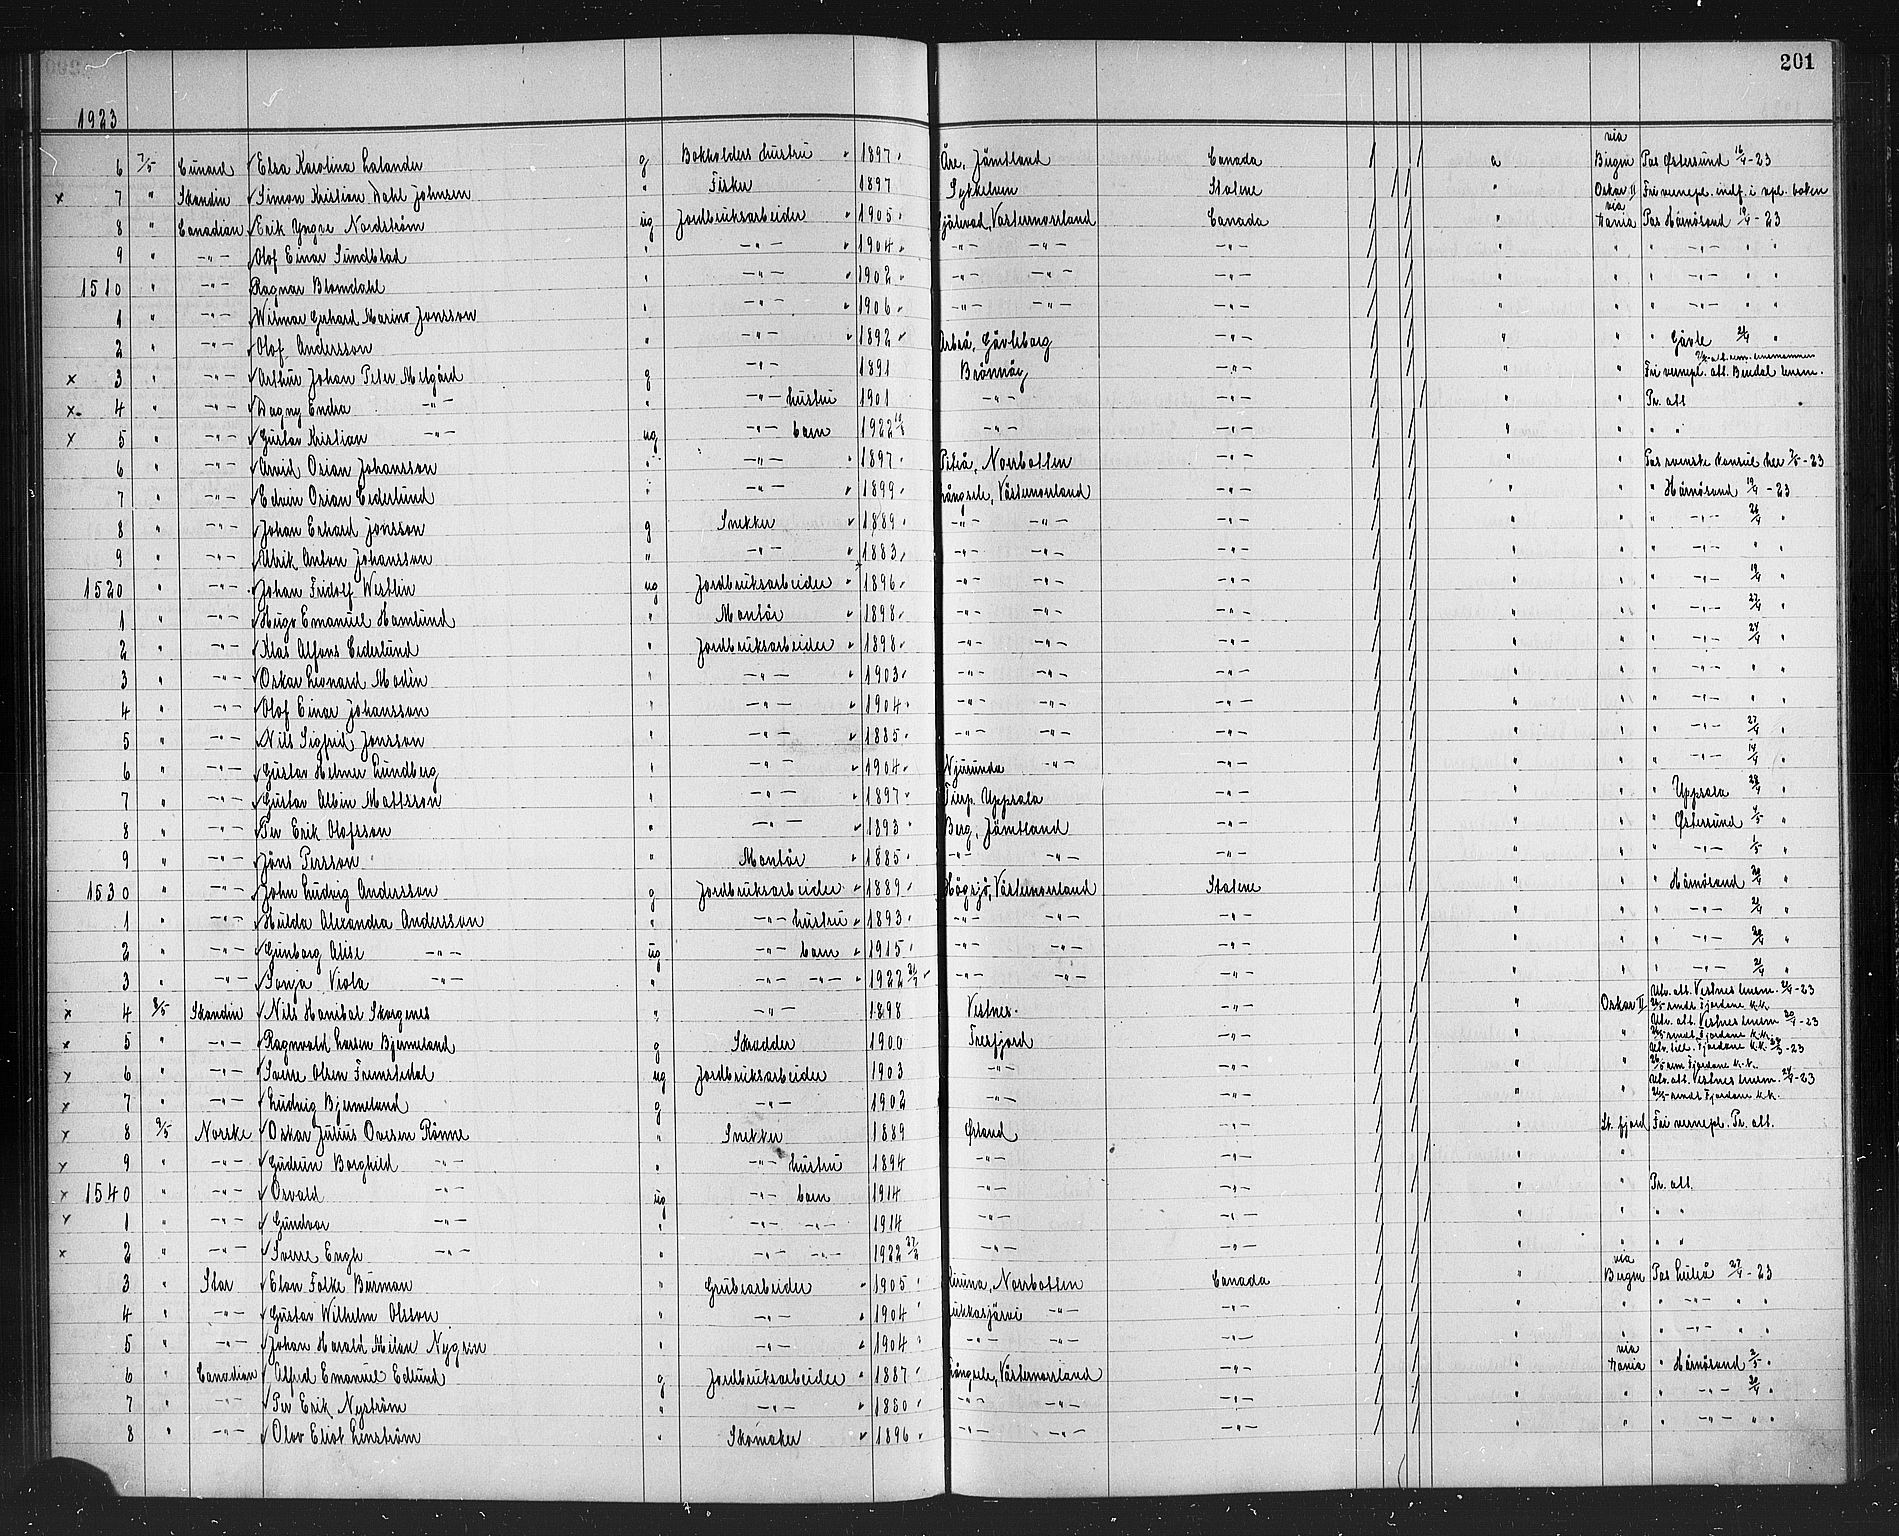 201
1923
6 7/5 Cunard Elsa Karolina Lalander g Bokholders hustru " 1897 Åre, Jämtland Canada a via Bergen Pas Østersund 16/4-23
x 7 " Skandin Simon Kristian Dahl Johnsen " Fisker 1897 Sykkelven Statene " Oskar II Fri vernepl. indf. i vpl. boken
8 " Canadian Erik Yngve Nordström ug Jordbruksarbeider " 1905 Själevad, Västernorrland Canada " via Xania Pas Härnösand 19/4-23
9 " -"- Olof Einar Sundblad " -"- " 1904 -"- -"- -"- " " " -"- " "
1510 " -"- Ragnar Blomdahl " -"- " 1902 -"- -"- -"- " " " -"- " "
1 " -"- Wilmar Gerhard Marino Jonsson " -"- " 1906 -"- -"- -"- " " " -"- " "
2 " -"- Olof Andersson " -"- " 1892 Arbrå, Gävleborg -"- " " " Gävle 21/4 "
x 3 " -"- Arthur Johan Peter Melgård g -"- 1891 Brönnöy -"- " " Fri vernepl. att. Bindal lensm.
x 4 " -"- Dagny Endra -"- " -"- hustru 1901 -"- -"- " " Pr. att
x 5 " -"- Gustav Kristian -"- ug -"- barn 1922 -"- -"- " " " "
6 " -"- Arvid Osian Johansson " -"- " 1897 Piteå, Norrbotten -"- " " Pas svenske konsul her 7/5-23
7 " -"- Edvin Osian Cederlund " -"- " 1899 Långsele, Västernorrland -"- " " " Härnösand 19/4-23
8 " -"- Johan Erhard Jonsson g Snekker " 1889 -"- -"- -"- " " " -"- 26/4 "
9 " -"- Ulrik Anton Johansson " -"- " 1883 -"- -"- -"- " " " -"- " "
1520 " -"- Johan Fridolf Westlin ug Jordbruksarbeider " 1896 -"- -"- -"- " " " -"- 19/4 "
1 " -"- Hugo Emanuel Hamlund " Montör " 1898 -"- -"- -"- " " " -"- 27/4 "
2 " -"- Klas Alfons Cederlund " Jordbruksarbeider " 1898 -"- -"- -"- " " " -"- 24/4 "
3 " -"- Oskar Leonard Modin " -"- " 1903 -"- -"- -"- " " " -"- " "
4 " -"- Olof Einar Johansson " -"- " 1904 -"- -"- -"- " " " -"- " "
5 " -"- Nils Sigfrid Jonsson " -"- " 1885 -"- -"- -"- " " " -"- 27/4 "
6 " -"- Gustav Helmer Lundberg " -"- " 1904 Njurunda -"- -"- " " " -"- 14/4 "
7 " -"- Gustav Albin Mattsson " -"- " 1897 Tierp, Uppsala -"- " " " Uppsala 28/4 "
8 " -"- Per Erik Olofsson " -"- " 1893 Berg, Jämtland -"- " " " Østersund 4/5 "
9 " -"- Jöns Persson " Montör " 1885 -"- -"- -"- " " " -"- 1/5 "
1530 " -"- John Ludvig Andersson g Jordbruksarbeider " 1889 Högsjö, Västernorrland Statene " " " Härnösand 20/4 "
1 " -"- Hulda Alexandra Andersson " -"- hustru " 1893 -"- -"- -"- " " " -"- 21/4 "
2 " -"- Gunborg Alise -"- ug -"- barn " 1915 -"- -"- -"- " " " -"- 20/4 "
3 " -"- Sonja Viola -"- " -"- -"- " 1922 21/7 -"- -"- -"- " " " -"- 21/4 "
x 4 8/5 Skandin Nils Hanibal Skorgenes " -"- 1898 Vestnes -"- " Oskar II Utv. att. Vestnes lensm. 21/4-23
26/5 sendt Fjordane K.K.
x 5 " -"- Ragnvald Larsen Bjermeland g Skredder 1900 Tresfjord -"- " " Utv. att. Vestnes lensm 20/4-23
26/5 sendt Fjordane K.K.
x 6 " -"- Sverre Olsen Fremstedal ug Jordbruksarbeider 1903 -"- -"- " " Utv. till. Fjordane K.K. 24/3-23
26/5 rem Fjordane K.K.
x 7 " -"- Ludvig Bjermeland g -"- 1902 -"- -"- " " Utv. att. Vestnes lensm. 24/4-23
26/5 sendt Fjordane K.K.
x 8 9/5 Norske Oskar Julius Ovesen Rönne " Snekker 1889 Ørland -"- " St. fjord Fri vernepl. Pr. att.
x 9 " -"- Gudrun Borghild -"- " -"- hustru 1894 -"- -"- " "
x 1540 " -"- Osvald -"- ug -"- barn 1914 -"- -"- " " Pr. att.
x 1 " -"- Gundvor -"- " -"- -"- 1914 -"- -"- " " " "
x 2 " -"- Sverre Engh -"- " -"- -"- 1922 -"- -"- " " " "
3 " Star Elon Folke Burman " Grubearbeider " 1905 Kiruna, Norrbotten Canada " via Bergen Pas Luleå 27/4-23
4 " -"- Gustav Wilhelm Olsson " -"- " 1904 Jukkasjärvi -"- -"- " " " -"- " "
5 " -"- Johan Harald Milan Nygren " -"- " 1904 -"- -"- -"- " " " -"- " "
6 " Canadian Alfred Emanuel Edlund g Jordbruksarbeider " 1887 Långsele, Västernorrland -"- " via Xania " Härnösand 2/5 "
7 " -"- Per Erik Nyström " -"- " 1880 -"- -"- -"- " " " -"- 30/4 "
8 " -"- Olov Eliot Linström " Skomaker " 1896 -"- -"- -"- " " " -"- " "